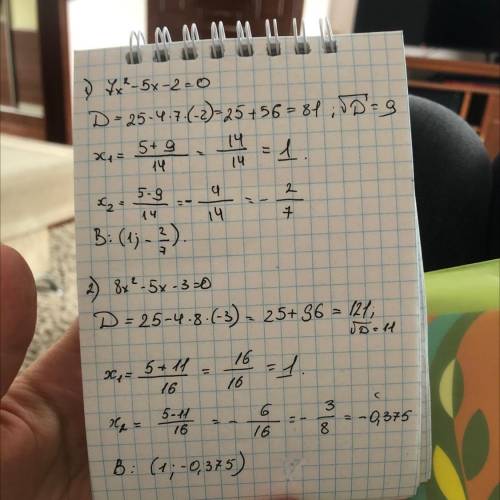 1) 7x²-5x-2=0
D=25-4·7·(-2)=25+56=81; √D=9
x₁=(5+9)/14=14/14=1.
x₂=(5-9)/14=-4/14=-2/7
В: (1; -2/7).
2) 8x²-5x-3=0
D=25-4·8·(-3)=25+96=121;
√D=11
x₁=(5+11)/16=16/16=1.
x₂=(5-11)/16=-6/16=-3/8=-0,375
В: (1; -0,375)